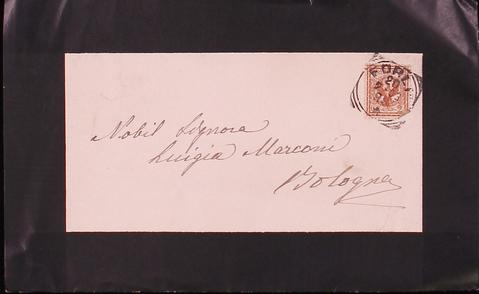 FORLI
20
Nobil Signora
Luigia Marconi
Bologna